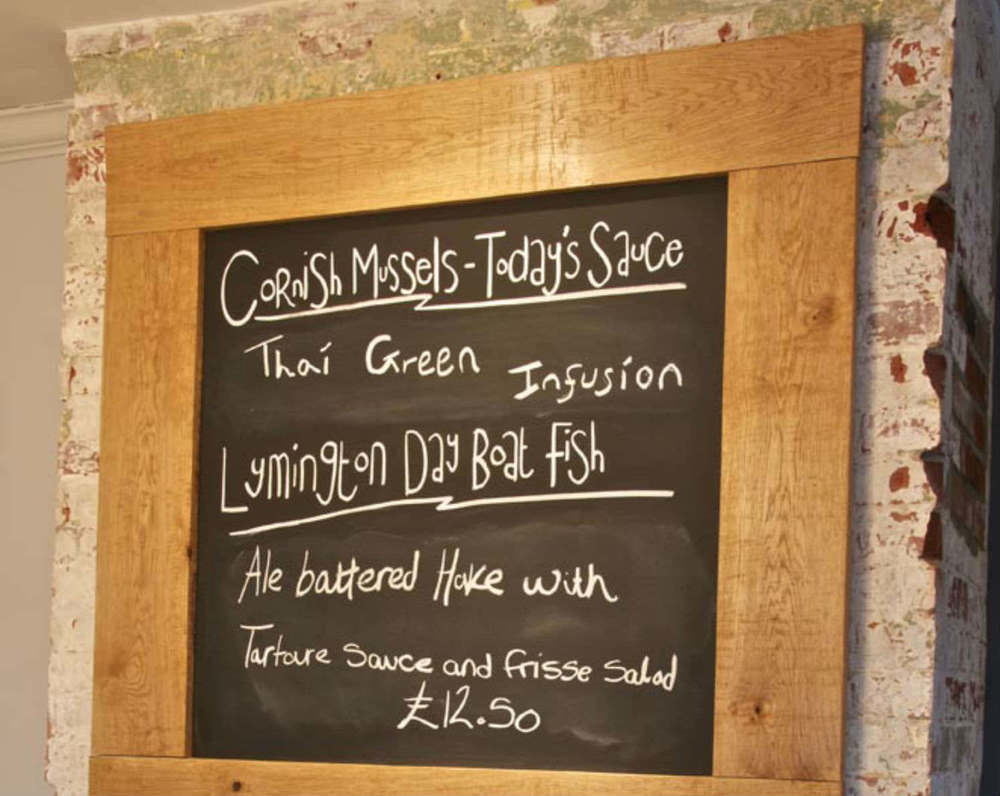 Cornish Mussels - Today's Sauce
Thai Green Infusion
Lymington Day Boat Fish
Ale battered Hake with
Tartare Sauce and frisse Salad
£12.50